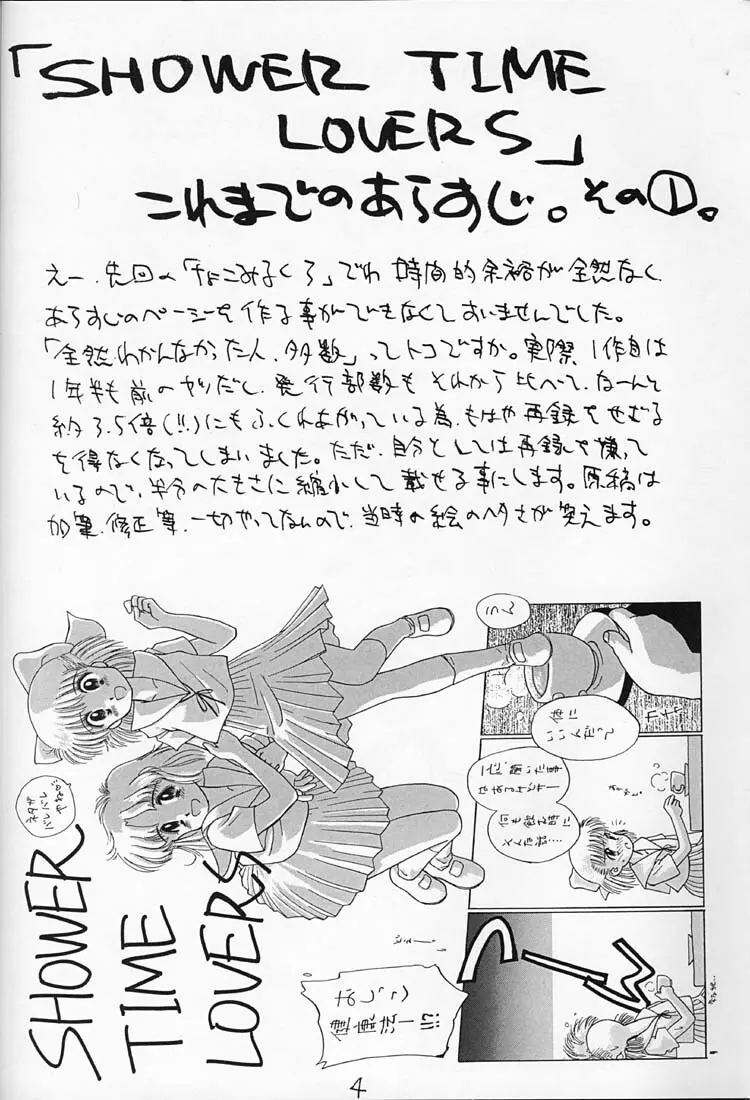 「SHOWER TIME
LOVERS」
これまでのあらすじ。その①。
えー、先回の「ちょこみるくろ」でわ 時間的余裕が全然なく
あらすじのページを作る事ができなくてすいませんでした。
「全然わかんなかった人、多数」ってトコですか。実際1作目は
1年半も前のヤツだし、発行部数も それから比べて、なーんと
約3.5倍(!!)にもふくれあがっている為、もはや再録をせざる
を得なくなってしまいました。ただ、自分としては再録を嫌って
いるので、半分のたもさに縮小して載せる事にします。原稿は
加筆、修正等、一切やってないので、当時の絵のヘタさが笑えます。
体に
いいんだって
SHOWER
TIME
LOVERS
つーん
健康法ー!!!
4